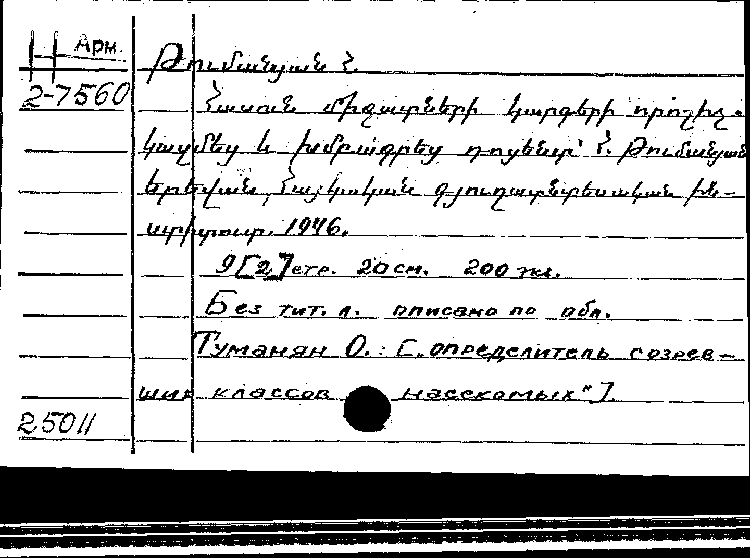 Н Арм.
Թումանյան Հ.
2-7560
Հասուն միջատների կարգերի որոշիչ.
կազմեց և խմբագրեց դոցենտ՝ Հ. Թումանյան
Երեվան, Հայկական գյուղատնտեսական ին-
ստիտուտ. 1946.
9[2] стр. 20 см. 200 экз.
Без тит. л. описано по обл.
Туманян О.: [„определитель созрев-
ших классов насекомых"].
25011